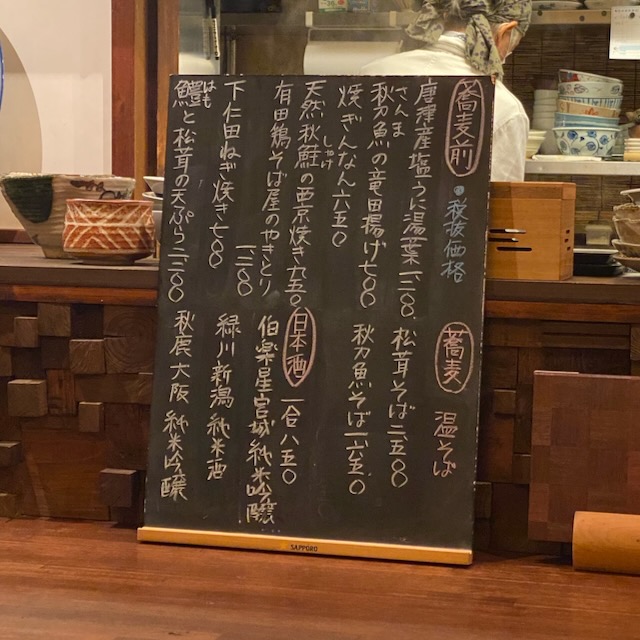 蕎麦前
●税抜価格
唐津産塩うに湯葉一二〇〇
さんま
秋刀魚の竜田揚げ七〇〇
焼きぎんなん六五〇
しゃけ
天然秋鮭の西京焼き九五〇
有田鶏そば屋のやきとり
一二〇〇
下仁田ねぎ焼き七〇〇
はも
鱧と松茸の天ぷら二二〇〇
蕎麦
温そば
松茸そば二五〇〇
秋刀魚そば一六五〇
日本酒
一合八五〇
伯楽星宮城 純米吟醸
緑川新潟 純米酒
秋鹿大阪 純米吟醸
SAPPORO